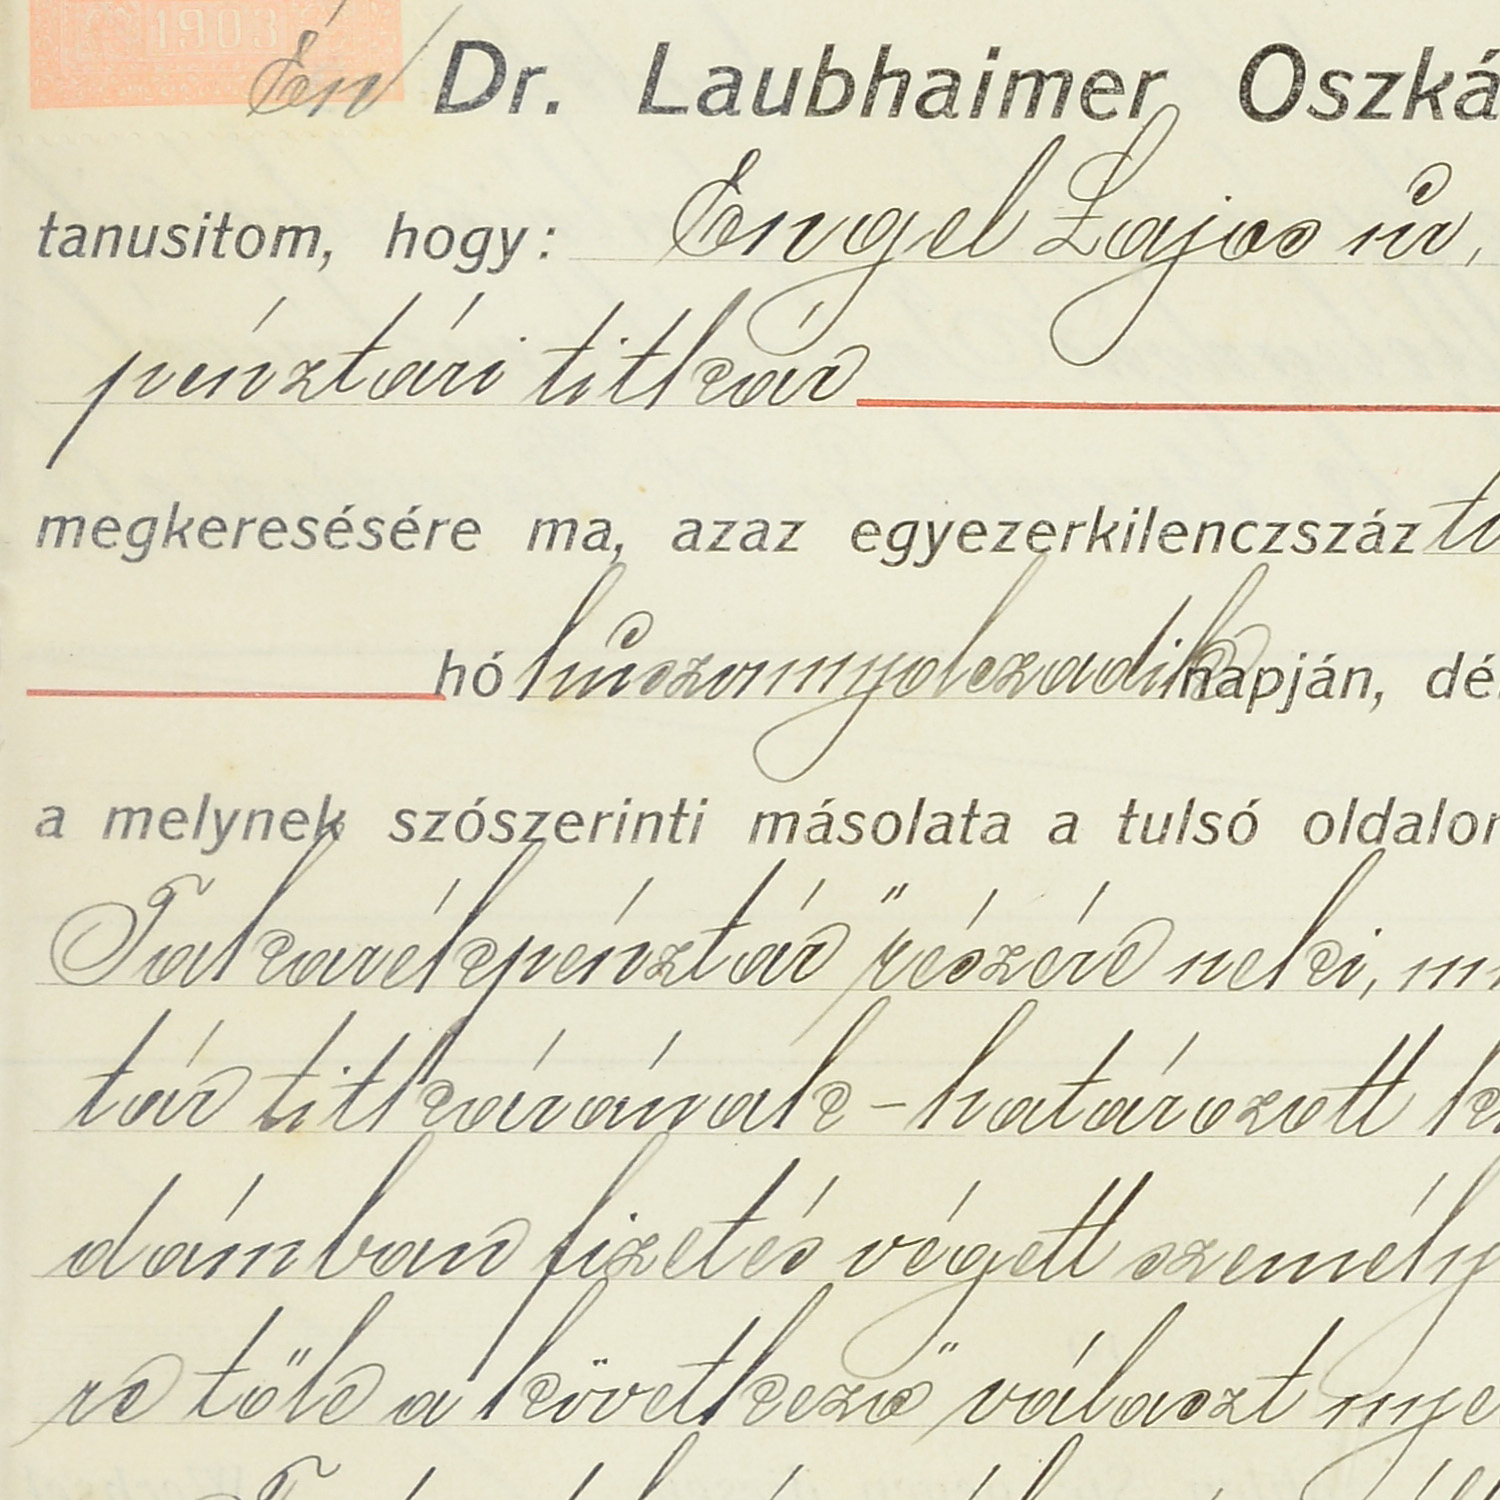 1903
Én Dr. Laubhaimer Oszká
tanusitom, hogy: Engel Lajos úr,
pénztári titkár
megkeresésére ma, azaz egyezerkilenczszáz ti
hó húszonnyolczadik napján, dé
a melynek szószerinti másolata a tulsó oldalon
Takarékpénztár" részére neki, mi
tár titkárának – határozott k
dámban fizetés végett személy
re tőle a következő választ nye